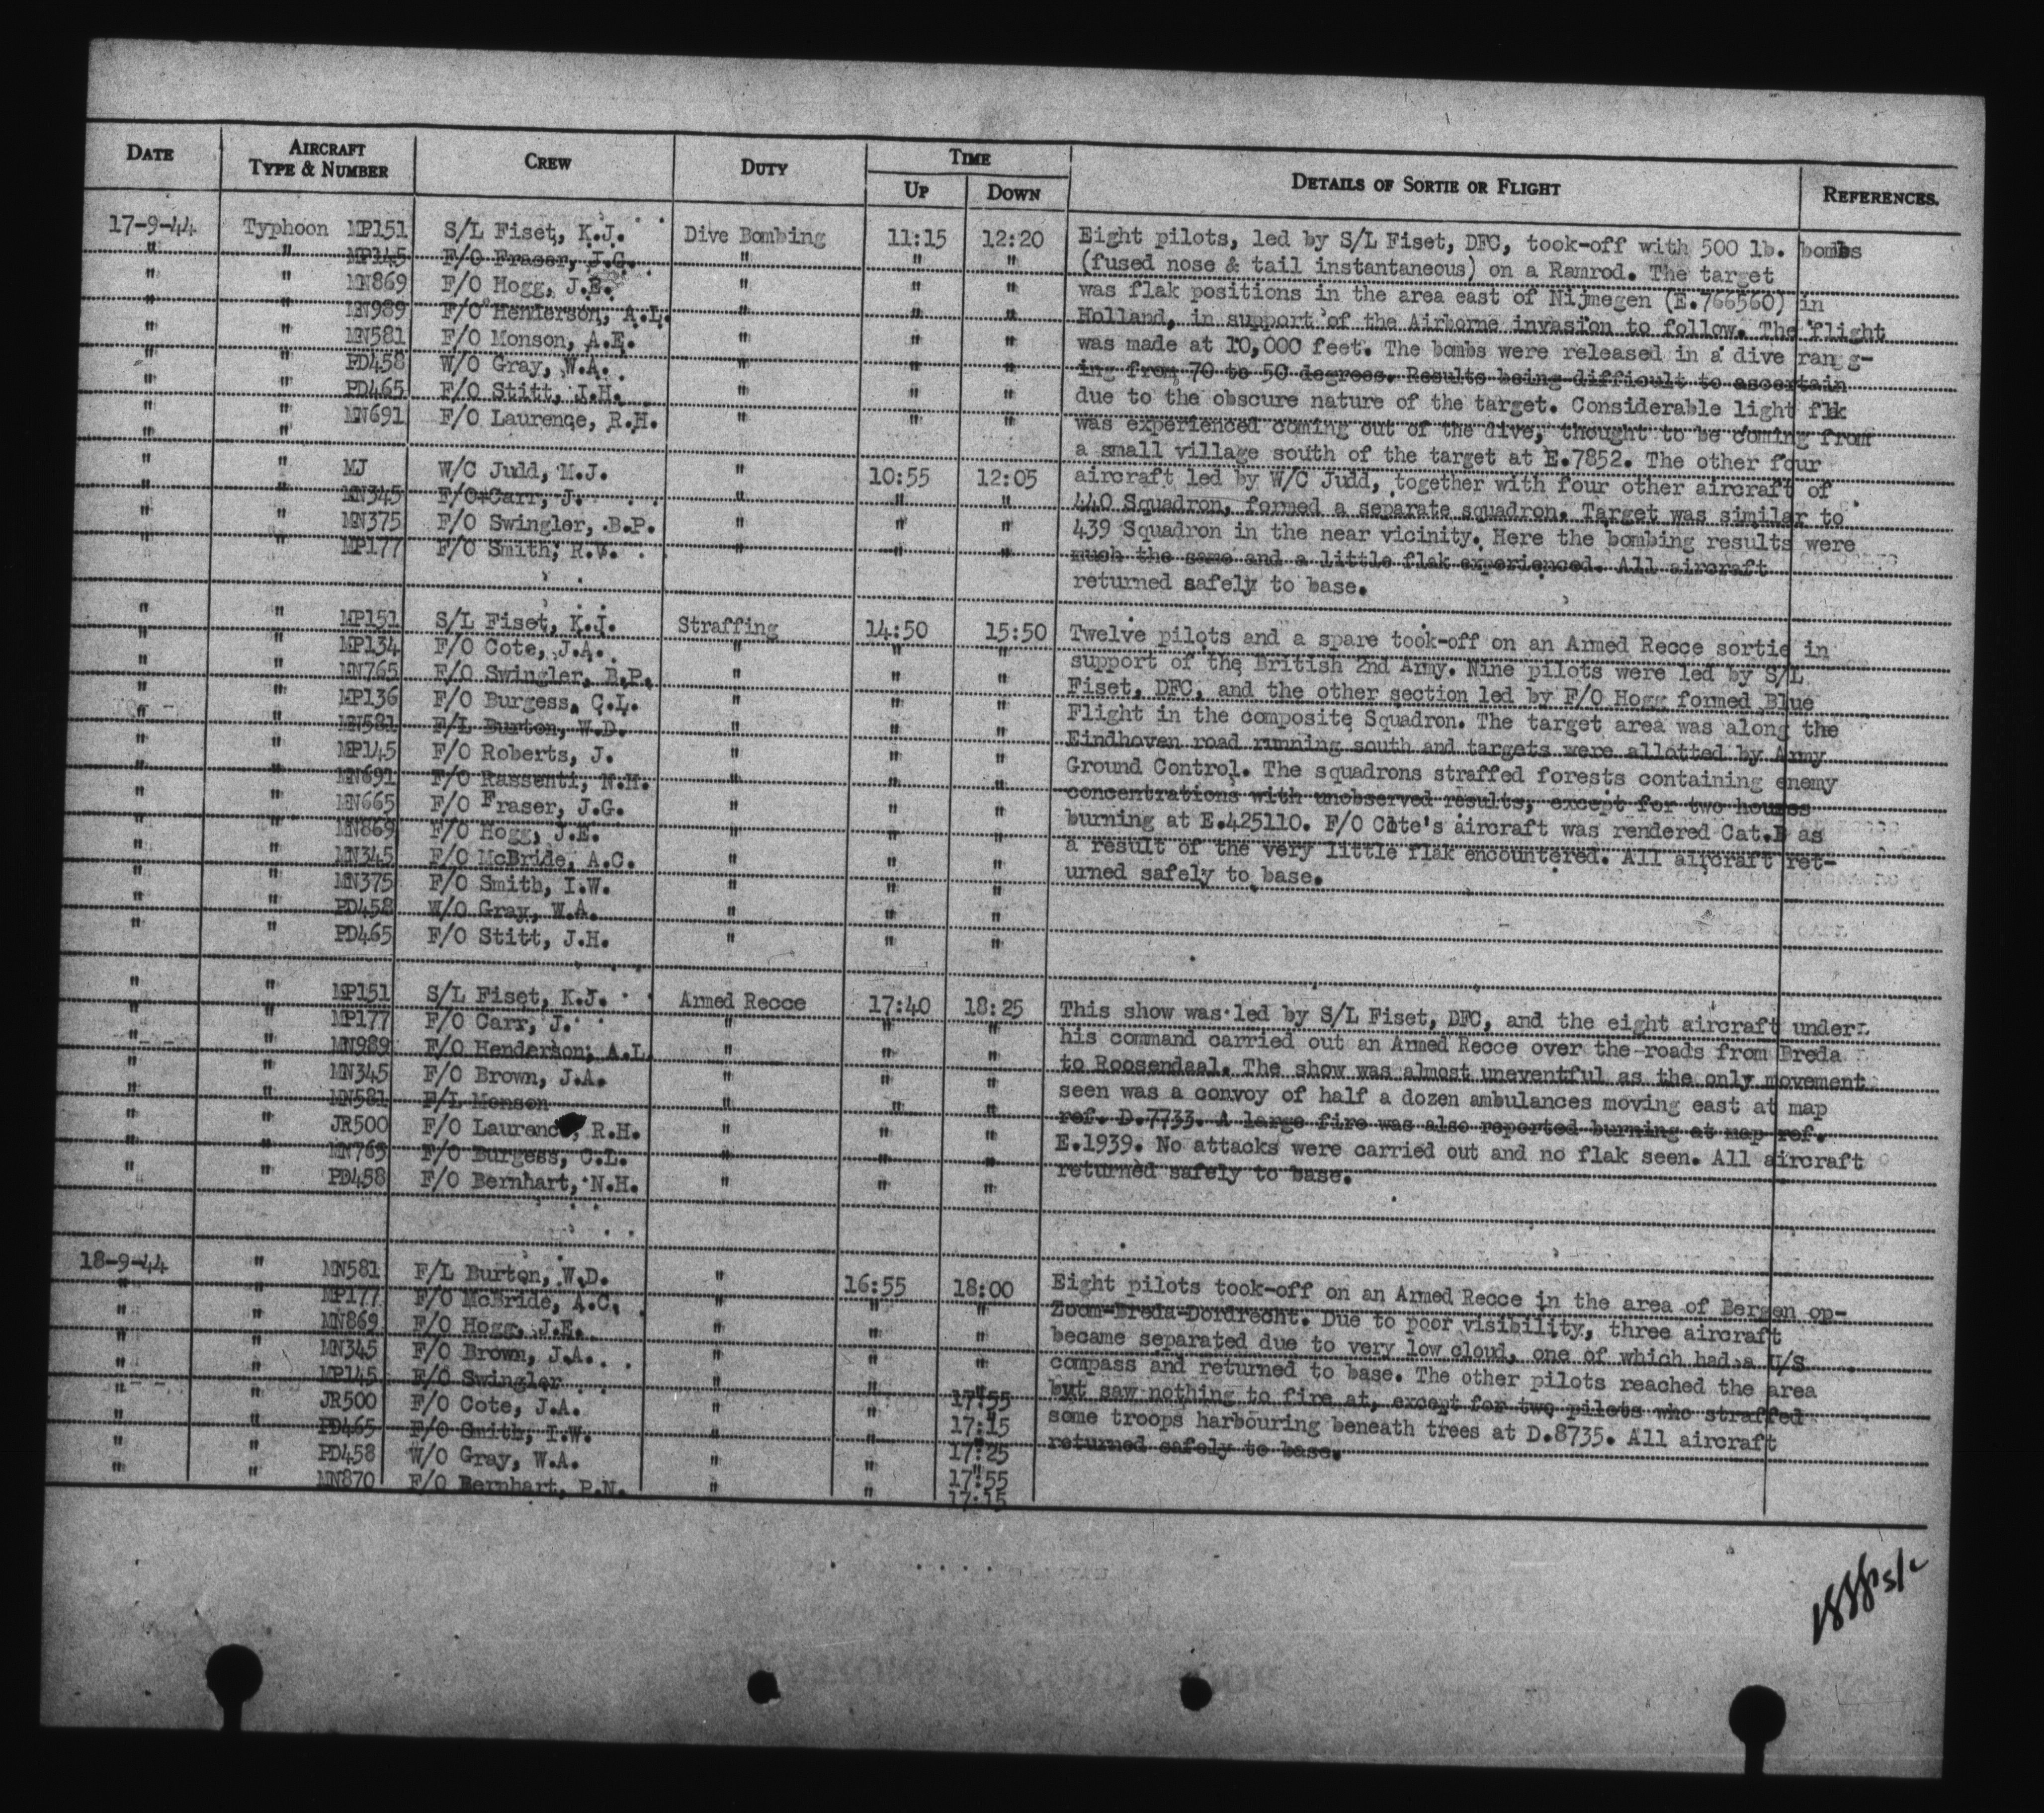 DATE AIRCRAFT TYPE & NUMBER CREW DUTY TIME UP DOWN DETAILS OF SORTIE OR FLIGHT REFERENCES.
17-9-44 Typhoon MP151 S/L Fiset, K.J. Dive Bombing 11:15 12:20 Eight pilots, led by S/L Fiset, DFC, took-off with 500 lb. bombs
" " MP145 F/O Fraser, J.G. " " " (fused nose & tail instantaneous) on a Ramrod. The target
" " MN869 F/O Hogg, J.E. " " " was flak positions in the area east of Nijmegen (E.766560) in
" " MN989 F/O Henderson, A.L. " " " Holland, in support of the Airborne invasion to follow. The flight
" " MN581 F/O Monson, A.E. " " " was made at 10,000 feet. The bombs were released in a dive rang-
" " PD458 W/O Gray, W.A. " " " ing from 70 to 50 degrees. Results being difficult to ascertain
" " PD465 F/O Stitt, J.H. " " " due to the obscure nature of the target. Considerable light flk
" " MN691 F/O Laurence, R.H. " " " was experienced coming out of the dive, thought to be coming from
" " a small village south of the target at E.7852. The other four
" " MJ W/C Judd, M.J. " 10:55 12:05 aircraft led by W/C Judd, together with four other aircraft of
" " MN345 F/O Carr, J. " " " 440 Squadron, formed a separate squadron. Target was similar to
" " MN375 F/O Swingler, B.P. " " " 439 Squadron in the near vicinity. Here the bombing results were
" " MP177 F/O Smith, R.V. " " " much the same and a little flak experienced. All aircraft
returned safely to base.
" " MP151 S/L Fiset, K.J. Straffing 14:50 15:50 Twelve pilots and a spare took-off on an Armed Recce sortie in
" " MP134 F/O Cote, J.A. " " " support of the British 2nd Army. Nine pilots were led by S/L
" " MN765 F/O Swingler, B.P. " " " Fiset, DFC, and the other section led by F/O Hogg formed Blue
" " MP136 F/O Burgess, C.L. " " " Flight in the composite Squadron. The target area was along the
" " MN581 F/L Burton, W.D. " " " Eindhoven road running south and targets were allotted by Army
" " MP145 F/O Roberts, J. " " " Ground Control. The squadrons straffed forests containing enemy
" " MN691 F/O Rassenti, N.H. " " " concentrations with unobserved results, except for two houses
" " MN665 F/O Fraser, J.G. " " " burning at E.425110. F/O Cote's aircraft was rendered Cat.B as
" " MN869 F/O Hogg, J.E. " " " a result of the very little flak encountered. All aircraft ret-
" " MN345 F/O McBride, A.C. " " " urned safely to base.
" " MN375 F/O Smith, I.W. " " "
" " PD458 W/O Gray, W.A. " " "
" " PD465 F/O Stitt, J.H. " " "
" " MP151 S/L Fiset, K.J. Armed Recce 17:40 18:25 This show was led by S/L Fiset, DFC, and the eight aircraft under
" " MP177 F/O Carr, J. " " " his command carried out an Armed Recce over the roads from Breda
" " MN989 F/O Henderson, A.L. " " " to Roosendaal. The show was almost uneventful as the only movement
" " MN345 F/O Brown, J.A. " " " seen was a convoy of half a dozen ambulances moving east at map
" " MN581 F/L Monson " " " ref. D.7733. A large fire was also reported burning at map ref.
" " JR500 F/O Laurence, R.H. " " " E.1939. No attacks were carried out and no flak seen. All aircraft
" " MN765 F/O Burgess, C.L. " " " returned safely to base.
" " PD458 F/O Bernhart, N.H. " " "
18-9-44 " MN581 F/L Burton, W.D. " 16:55 18:00 Eight pilots took-off on an Armed Recce in the area of Bergen op-
" " MP177 F/O McBride, A.C. " " " Zoom-Breda-Dordrecht. Due to poor visibility, three aircraft
" " MN869 F/O Hogg, J.E. " " " became separated due to very low cloud, one of which had a U/S
" " MN345 F/O Brown, J.A. " " " compass and returned to base. The other pilots reached the area
" " MP145 F/O Swingler " " 17:55 but saw nothing to fire at, except for two pilots who straffed
" " JR500 F/O Cote, J.A. " " 17:15 some troops harbouring beneath trees at D.8735. All aircraft
" " PD465 F/O Smith, I.W. " " 17:25 returned safely to base.
" " PD458 W/O Gray, W.A. " " 17:55
" " MN870 F/O Bernhart, P.N. " " 17:15